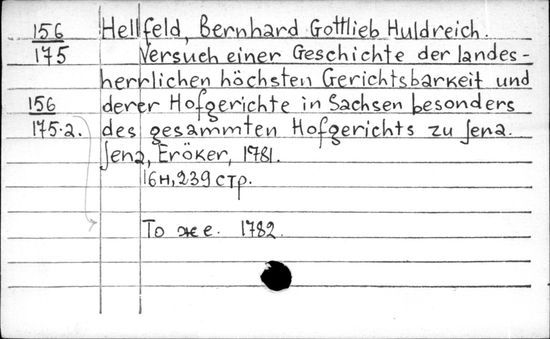 156 Hellfeld, Bernhard Gottlieb Huldreich.
175 Versuch einer Geschichte der landes-
herrlichen höchsten Gerichtsbarkeit und
156 derer Hofgerichte in Sachsen besonders
175.a. des gesammten Hofgerichts zu Jena.
Jena, Eröker, 1781.
16н, 239 стр.
То же. 1782.